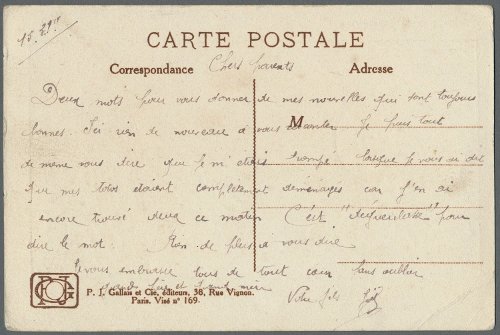 CARTE POSTALE
Correspondance
Adresse
Chers parents
Deux mots pour vous donner de mes nouvelles qui sont toujours
bonnes. Ici rien de nouveau à vous M Je puis tout
de même vous dire que je m'étais trompé lorsque je vous ai dit
que mes totos étaient complètement déménagés car j'en ai
encore trouvé deux ce matin C'est pour
dire le mot. Rien de plus à vous dire
Je vous embrasse tous de tout cœur sans oublier
Votre fils
P. J. Gallais et Cie, éditeurs, 38, Rue Vignon.
Paris. Visé n° 169.